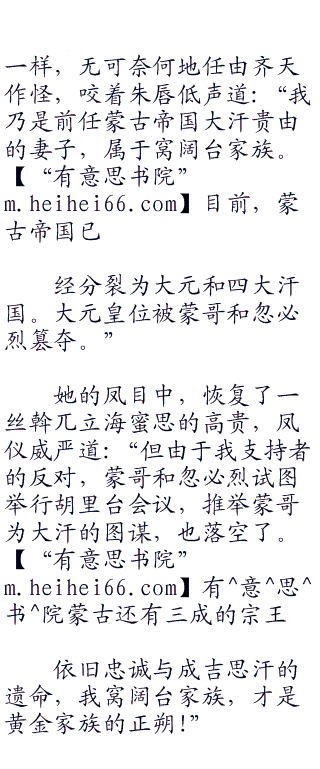 一样，无可奈何地任由齐天
作怪，咬着朱唇低声道：“我
乃是前任蒙古帝国大汗贵由
的妻子，属于窝阔台家族。
【“有意思书院”
m.heihei66.com】目前，蒙
古帝国已
经分裂为大元和四大汗
国。大元皇位被蒙哥和忽必
烈篡夺。”
她的凤目中，恢复了一
丝斡兀立海蜜思的高贵，凤
仪威严道：“但由于我支持者
的反对，蒙哥和忽必烈试图
举行胡里台会议，推举蒙哥
为大汗的图谋，也落空了。
【“有意思书院”
m.heihei66.com】有^意^思^
书^院蒙古还有三成的宗王
依旧忠诚与成吉思汗的
遗命，我窝阔台家族，才是
黄金家族的正朔！”